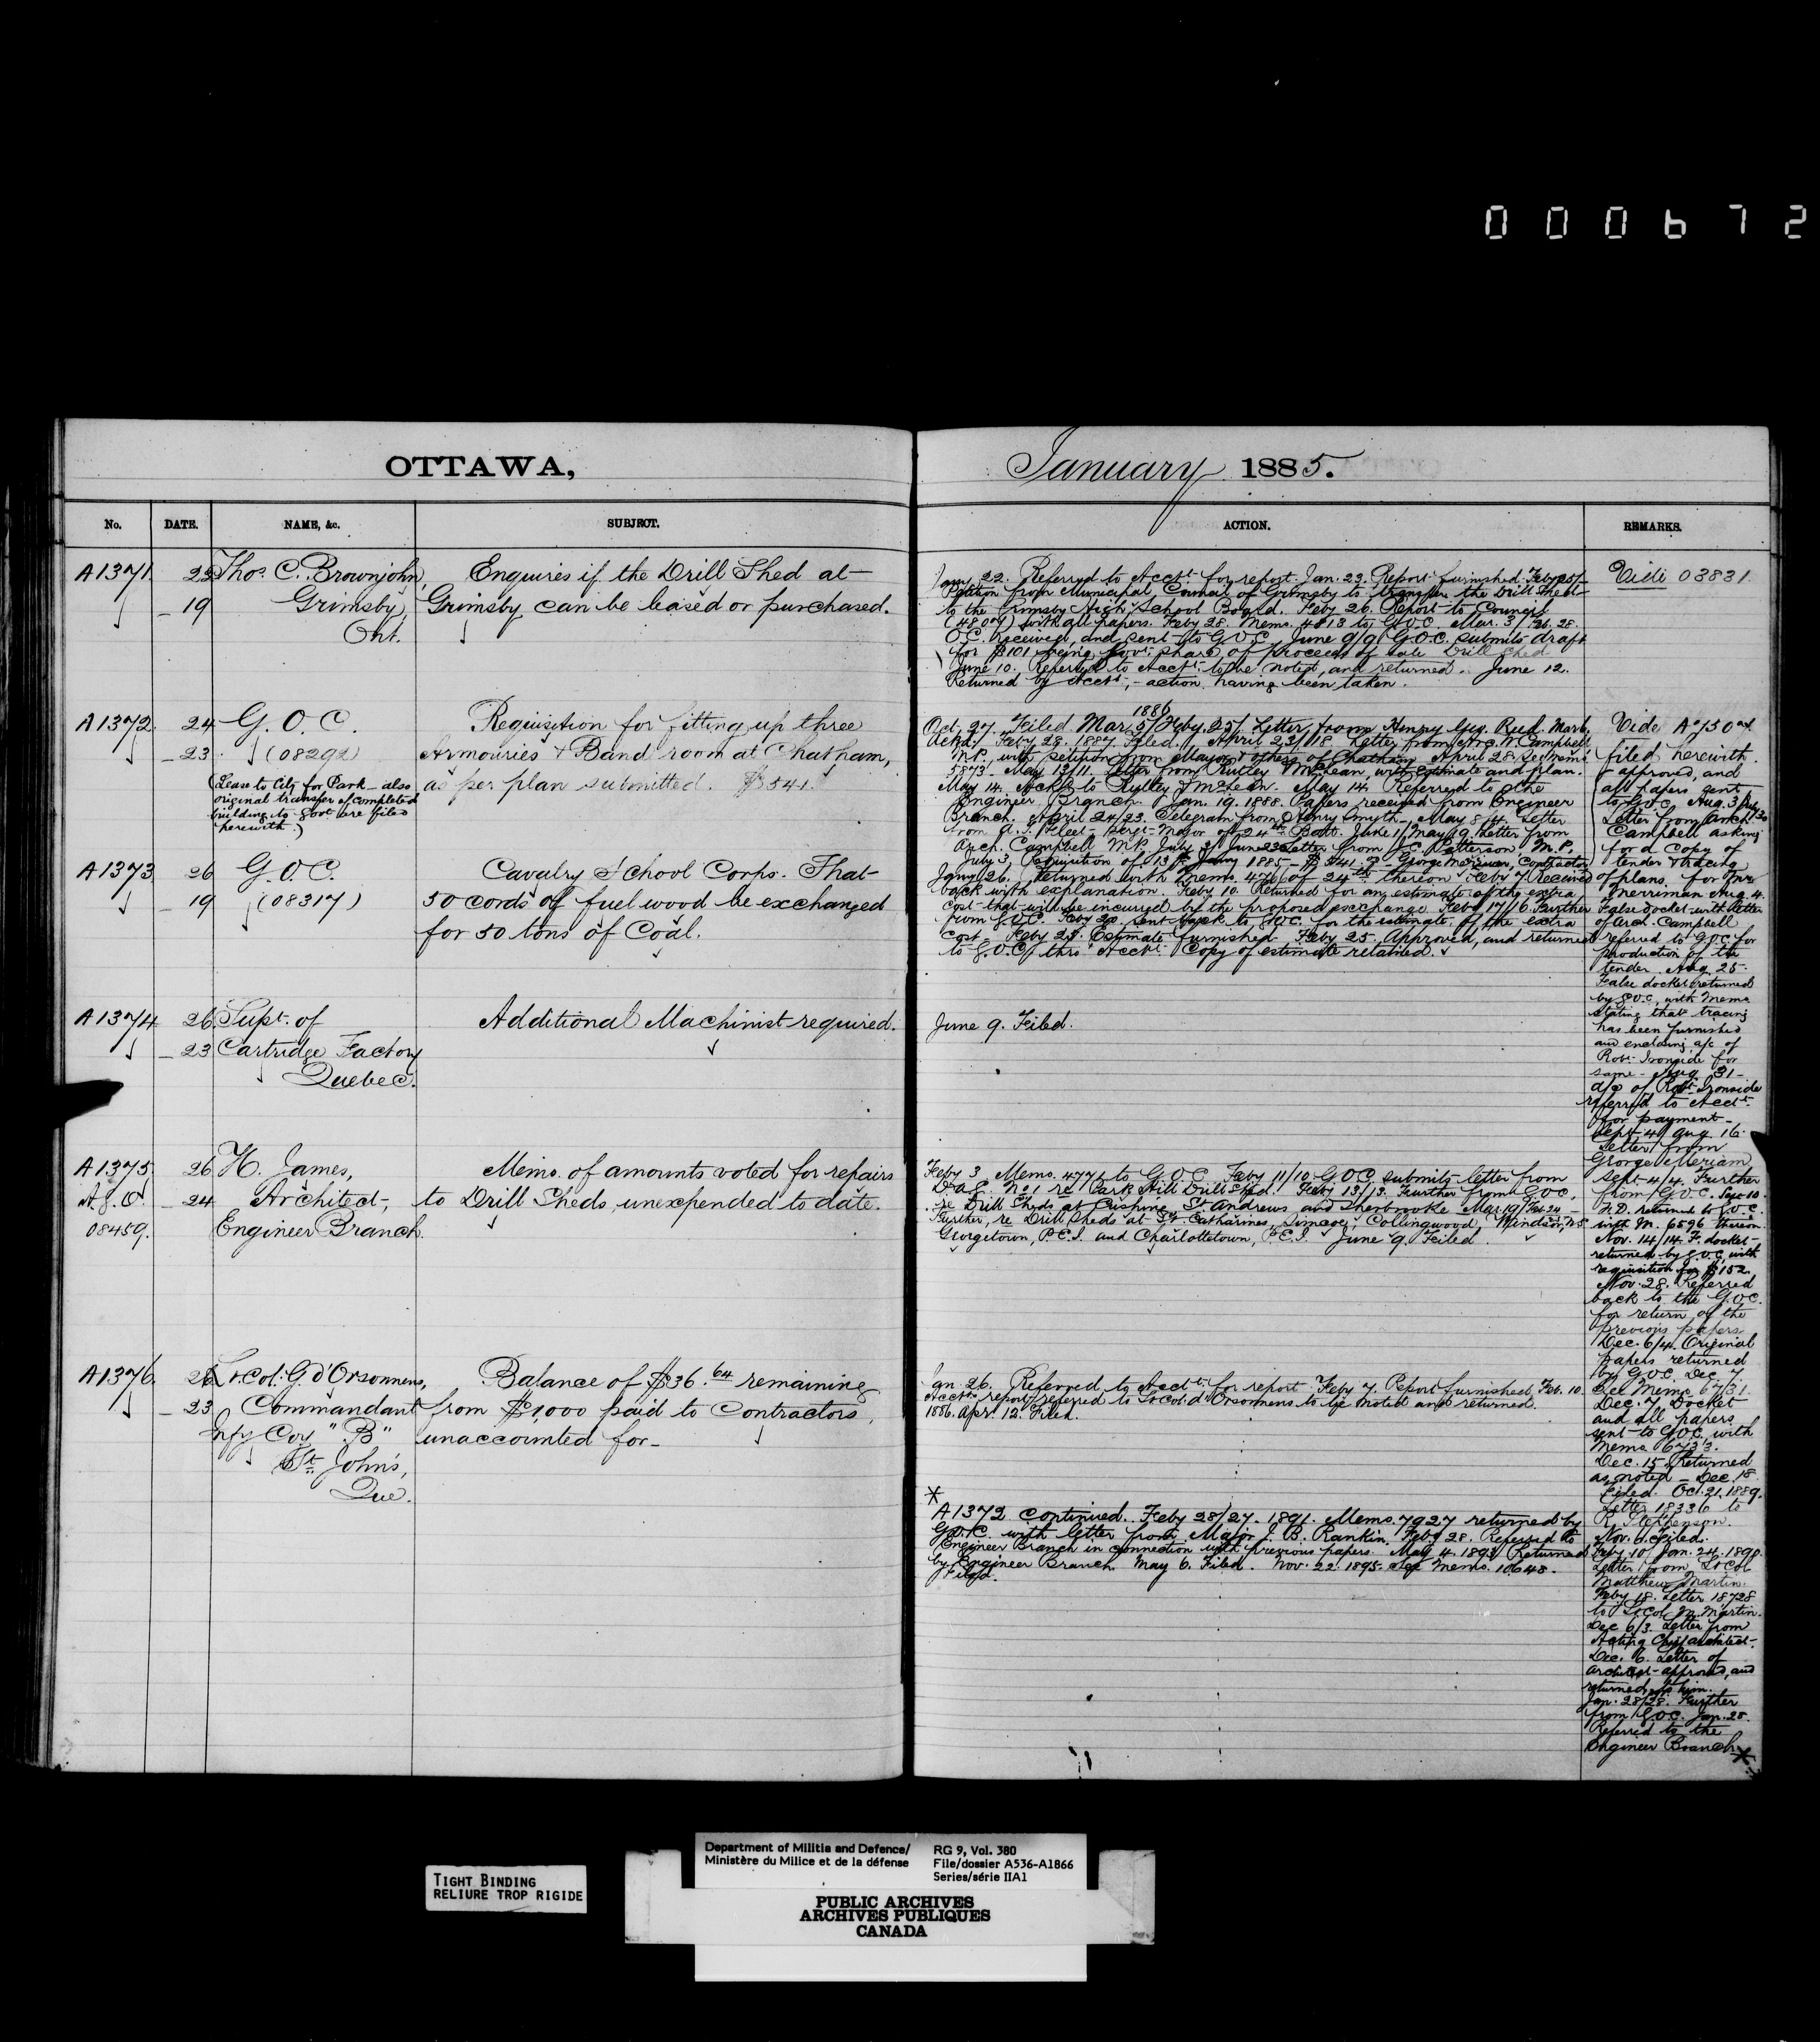 000672
OTTAWA,
No. DATE. NAME, &c. SUBJECT.
A1371 22 Thos. C. Brownjohn, Enquires if the Drill Shed at
19 Grimsby, Grimsby can be leased or purchased.
Ont.
A1372 24 G. O. C. Requisition for fitting up three
23 (08292) Armouries & Band room at Chatham,
(Lease to City for Park - also as per plan submitted. $541.
original transfer of completed
building to Govt are filed
herewith.)
A1373 26 G. O. C. Cavalry School Corps. That
19 (08317) 50 cords of fuel wood be exchanged
for 50 tons of Coal.
A1374 26 Supt. of Additional Machinist required.
23 Cartridge Factory
Quebec.
A1375 26 H. James, Memo. of amounts voted for repairs
A.G.O. 24 Architect, to Drill Sheds, unexpended to date.
08459. Engineer Branch
A1376 26 Lt. Col. G. d'Orsonnens, Balance of $36.64 remaining
23 Commandant from $1,000 paid to Contractors,
Infy Coy "B" unaccounted for
St. John's,
Que.
January 1885.
ACTION. REMARKS.
Jany 22. Referred to Acctt. for report. Jan. 23. Report furnished. Feby 25/
Petition from Municipal Council of Grimsby to transfer the Drill Shed
to the Grimsby High School Board. Feby 26. Report to Council
(4807) with all papers. Feby 28. Memo. 4818 to G.O.C. Mar. 3/Feb. 28.
O.C. received and sent to G.O.C. June 9/9 G.O.C. submits draft
for $101 being Govt. share of proceeds of sale Drill Shed
June 10. Referred to Acctt. to be noted, and returned. June 12.
Returned by Acctt., - action having been taken.
Vide 03831.
1886
Oct. 27. Filed Mar. 5/Feby. 25/ Letter from Henry
Ackd. Feby 28. 1887. Filed. April 23/18 Letter from W. Campbell
M.P., with petition from Mayor & others of Chatham April 28 See Memo
5873. May 13/11. Letter from Rutley & McLean, with estimate and plan.
May 14. Ackd. to Rutley & McLean. May 14. Referred to the
Engineer Branch. Jan. 19. 1888. Papers received from Engineer
Branch. April 24/23. Telegram from Henry Smyth. May 8/4 Letter
from Fleet, Sergt-Major of 24th Batt. June 1/May 19. Letter from
Arch. Campbell M.P. July 3/June 23 Letter from J.C. Patterson M.P.
July 3, Requisition of 13th Jany 1885 - $541. Contractor
Jany 26. Returned with Memo. 476 of 24th thereon Feby 7. Received
back with explanation. Feby 10. Returned for an estimate of the extra
cost that will be incurred by the proposed exchange. Feby 17/16. Further
from G.O.C. Feby 20. sent back to G.O.C. for the estimate of the extra
cost. Feby 23. Estimate furnished Feby 25. Approved, and returned
to G.O.C. thro' Acctt. Copy of estimate retained.
June 9. Filed.
Feby 3 Memo. 4776 to G.O.C. Feby 11/10 G.O.C. submits letter from
D.A.G. No. 1 re Park Hill Drill Shed. Feby 13/13. Further from G.O.C.
re Drill Sheds at St. Andrews and Sherbrooke Mar 19/Feb. 24
Further, re Drill Sheds at St. Catharines, Simcoe, Collingwood, Windsor, N.S.
Georgetown, P.E.I. and Charlottetown, P.E.I. June 9. Filed
Jan. 26. Referred to Acctt. for report Feby 7. Report furnished, Feb. 10.
Acctts. report referred to Lt. Col. d'Orsonnens to be noted and returned.
1886. Apr. 12. Filed.
*
A1372 continued. Feby 28/27. 1891. Memo. 7927 returned by
G.O.C. with letter from Major J. B. Rankin. Feby 28. Referred to
Engineer Branch in connection with previous papers. May 4. 1893 Returned
by Engineer Branch. May 6. Filed. Nov. 22. 1895. Memo. 10648.
Filed.
filed herewith.
approved, and
all papers sent
to G.O.C. Aug. 3/July 30
Letter from Arch.
Campbell asking
for a copy of
tender & tracing
of plans for Mr
Merriman Aug 4.
False docket with letter
of Arch. Campbell
referred to G.O.C. for
production of the
tender. Aug. 25.
False docket returned
by G.O.C., with memo
stating that tracing
has been furnished
and enclosing a/c of
Robt. Ironside for
same - Aug. 31 -
a/c of Robt. Ironside
referred to Acctt.
for payment -
Sept. 4/Aug 16.
Letter from
George Meriam
Sept. 4/4. Further
from G.O.C. Sept. 10.
F.D. returned to G.O.C.
with M. 6596 thereon
Nov. 14/14. F. docket
returned by G.O.C. with
requisition for $152.
Nov. 28. Referred
back to the G.O.C.
for return of the
previous papers
Dec. 6/4. Original
papers returned
by G.O.C. Dec. 7.
See Memo 6731.
Dec. 7. Docket
and all papers
sent to G.O.C. with
Memo 6733.
Dec. 15. Returned
as noted - Dec. 18
Filed. Oct. 21. 1889.
Letter 18336 to
R. Stephenson.
Nov. 6. Filed.
Feby. 10/Jan. 24. 1890.
Letter from Lt Col
Matthew Martin.
Feby 18. Letter 18728
to Lt. Col. M. Martin.
Dec. 6/3. Letter from
Acting Chief Architect.
Dec. 6. Letter of
architect approved, and
returned to him.
Jan. 28/28. Further
from G.O.C. Jan. 28.
Referred to the
Engineer Branch *
TIGHT BINDING
RELIURE TROP RIGIDE
Department of Militia and Defence/
Ministère du Milice et de la défense
RG 9, Vol. 380
File/dossier A536-A1866
Series/série IIA1
PUBLIC ARCHIVES
ARCHIVES PUBLIQUES
CANADA